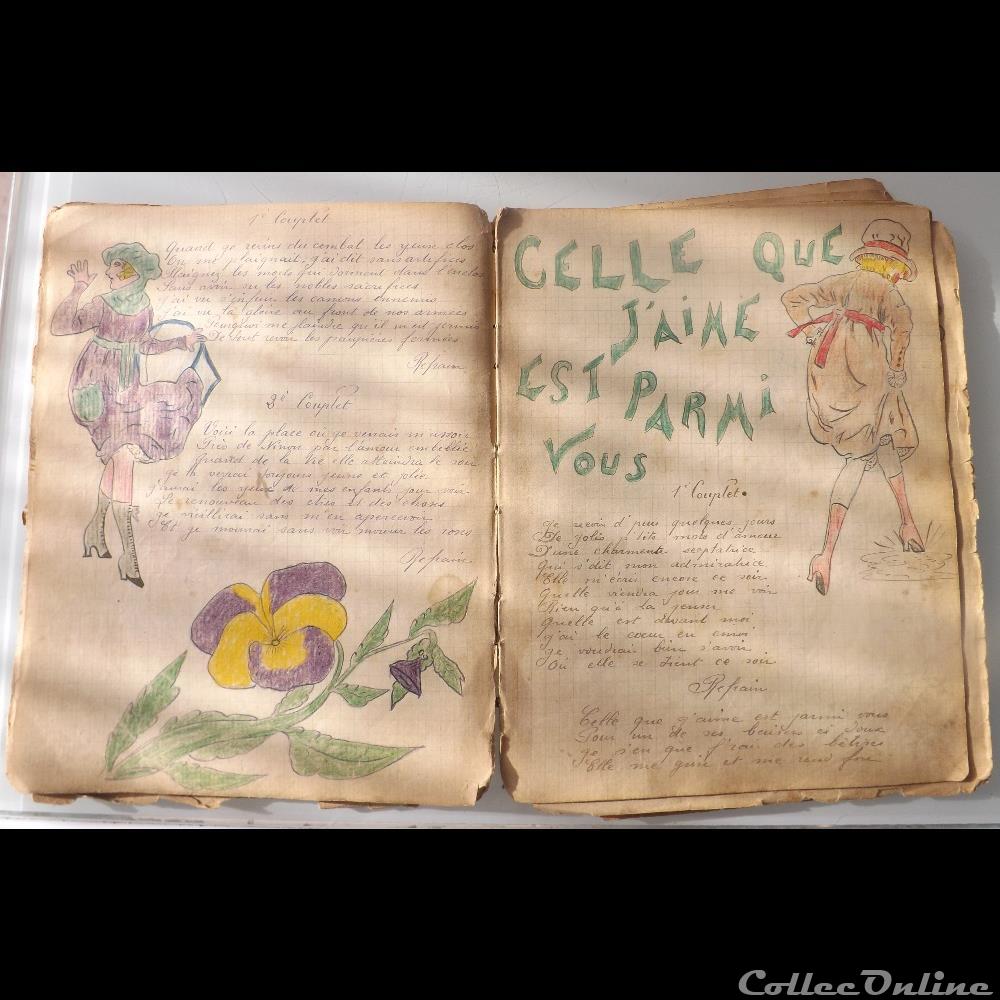 1er Couplet
Quand je revins du combat les yeux clos
On me plaignait, j'ai dit sans artifices
Plaignez les morts qui dorment dans l'enclos
Sans avoir vu les nobles sacrifices
J'ai vu s'enfuir les canons ennemis
J'ai vu la gloire au front de nos armées
Pourquoi me plaindre qu'il m'est permis
De tout revoir les paupières fermées
Refrain
3e Couplet
Voici la place où je venais m'assoir
Près de Ninon par l'amour embellie
Quand de la vie elle atteindra le soir
je la verrai toujours jeune et jolie
J'aurai les yeux de mes enfants pour voir
Le renouveau des êtres et des choses
je vieillirai sans m'en apercevoir
Et je mourrai sans voir mourir les roses
Refrain
CELLE QUE
J'AIME
EST PARMI
VOUS
1er Couplet.
Je reçoin d'puis quelques jours
De jolis p'tits mots d'amour
D'une charmante
Qui s'dit mon admiratrice
Elle m'écris encore ce soir
Quelle viendra pour me voir
Rien qu'à la penser
Quelle est devant moi
j'ai le coeur en émoi
je voudrais bien s'avoir
Où elle se tient ce soir
Refrain
Celle que j'aime est parmi vous
Pour un de ses baisers si doux
je s'en que j'frai des bêtises
Elle me grise et me rend fou
CollecOnline